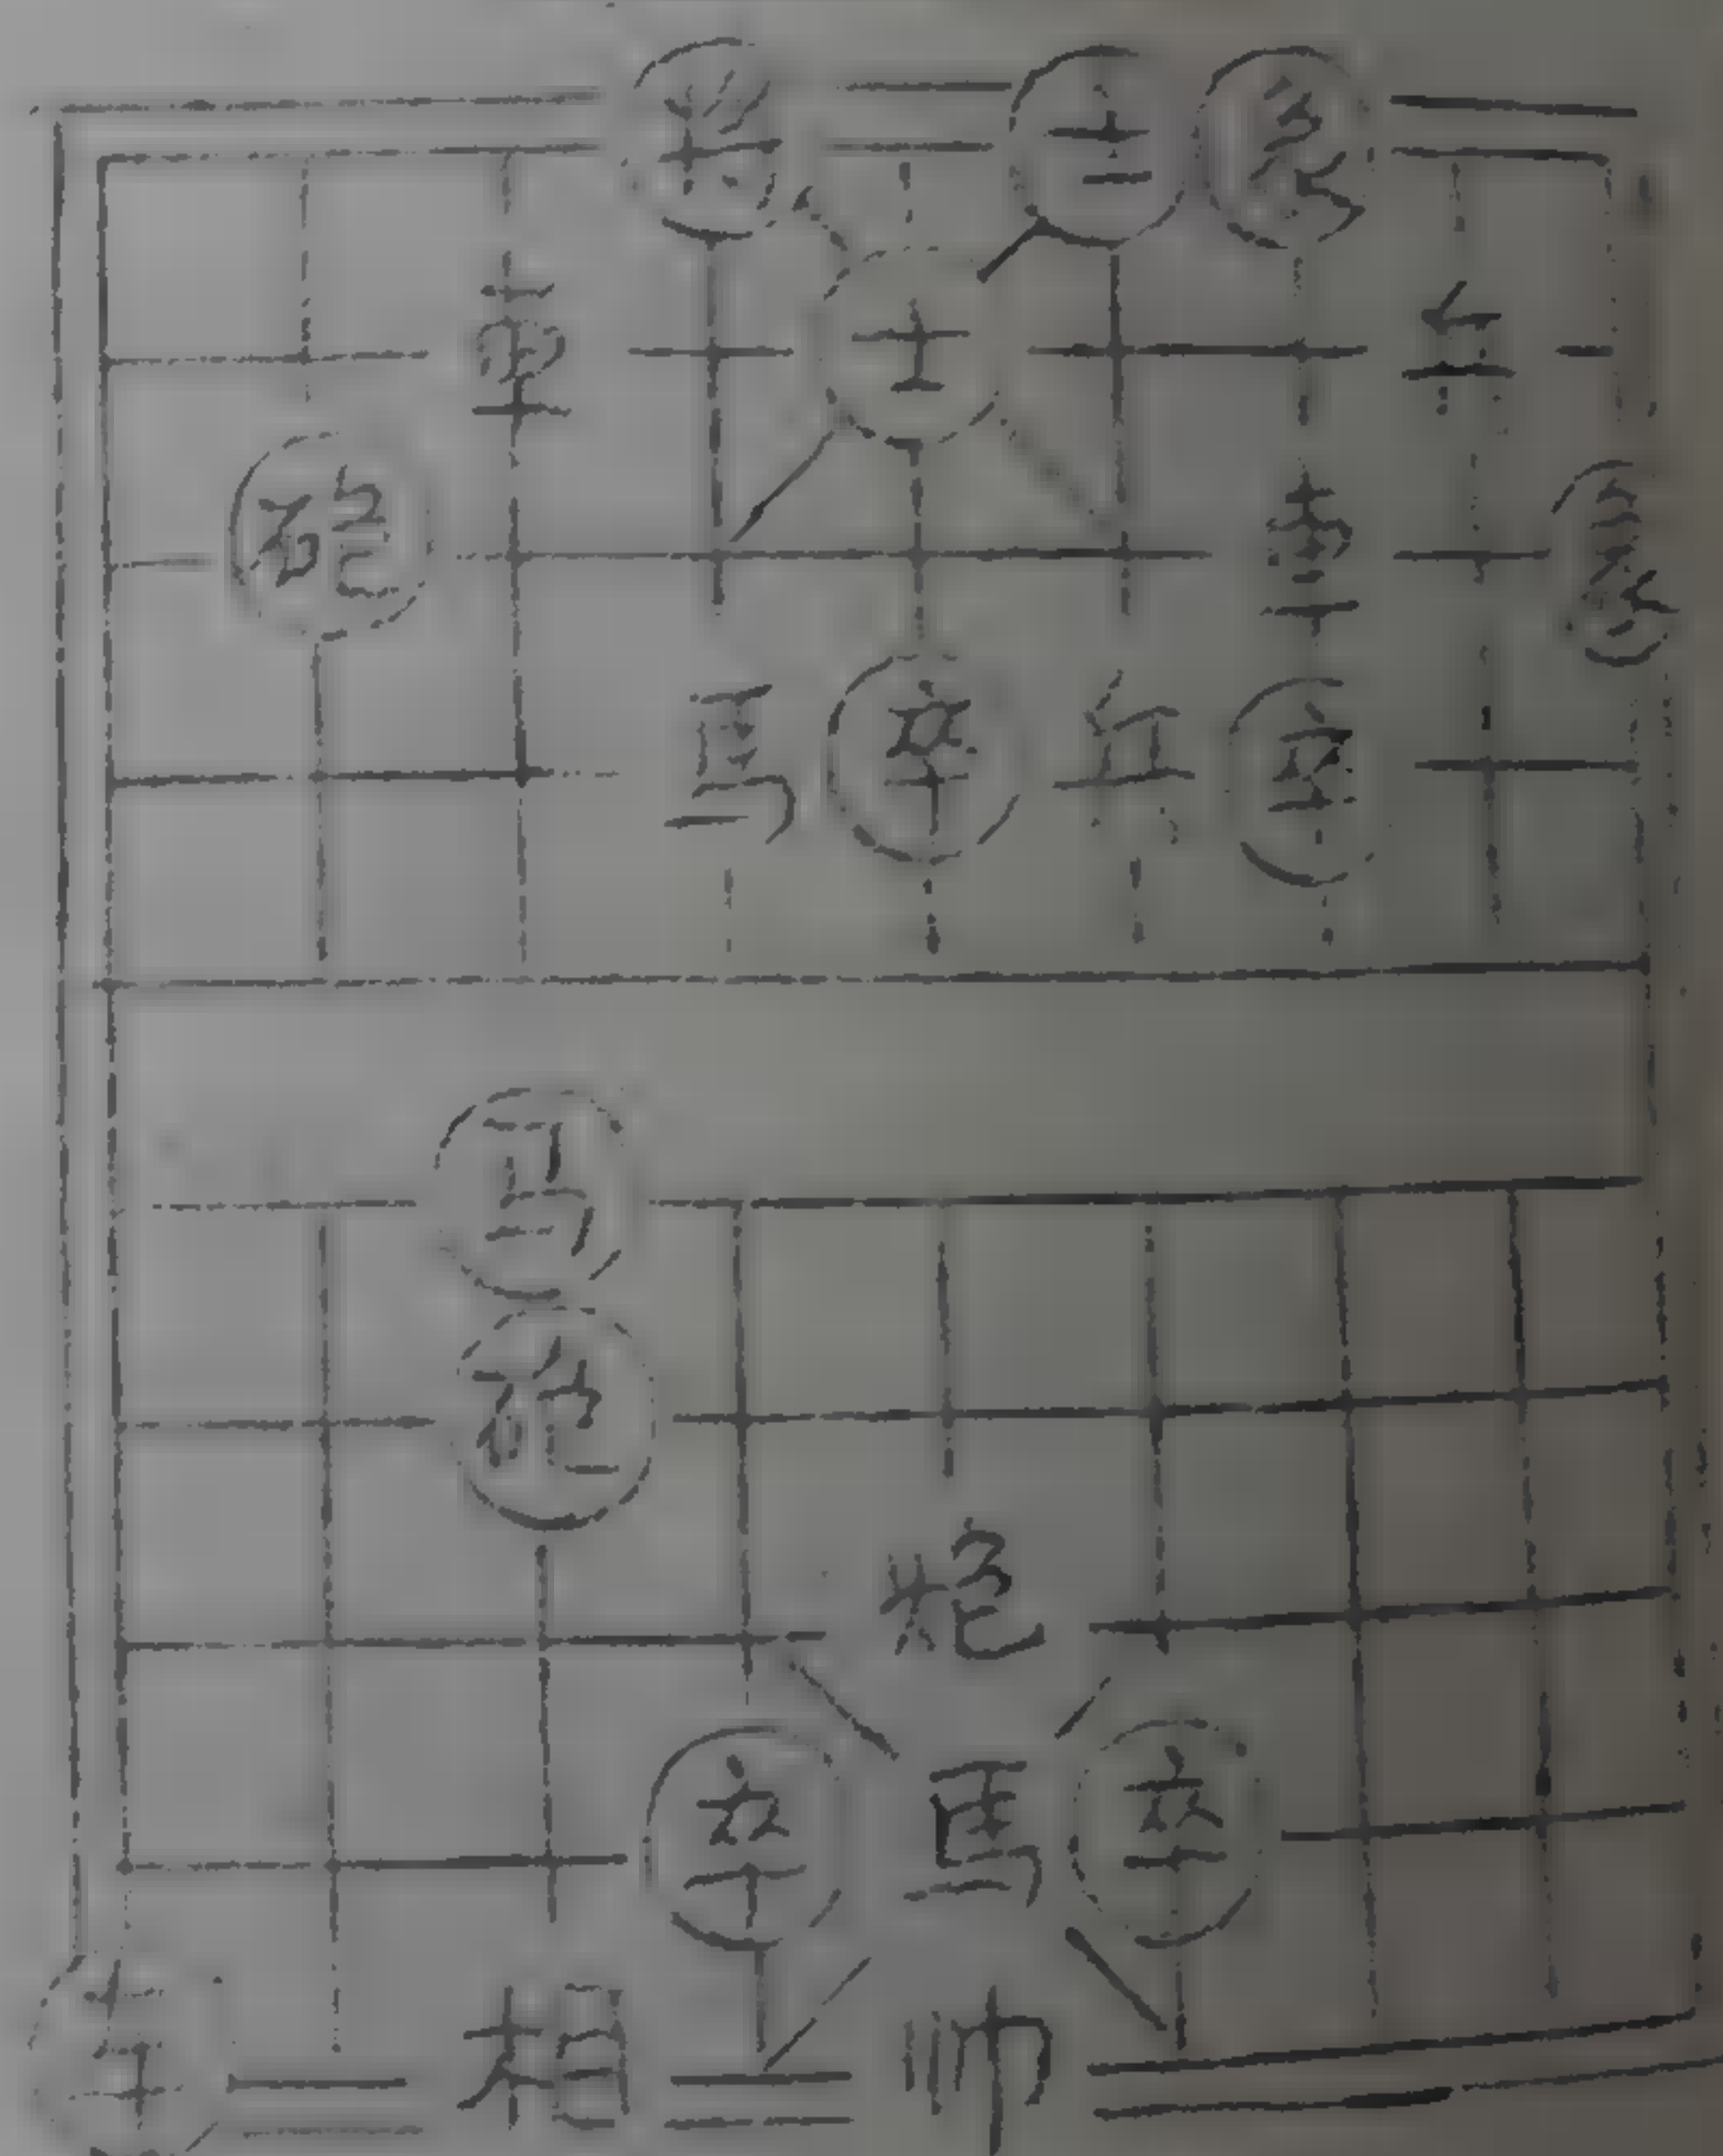 將 士 象
車 士 兵
砲 車 象
馬 卒 兵 卒
马
砲
炮
卒 馬 卒
车 相 帅